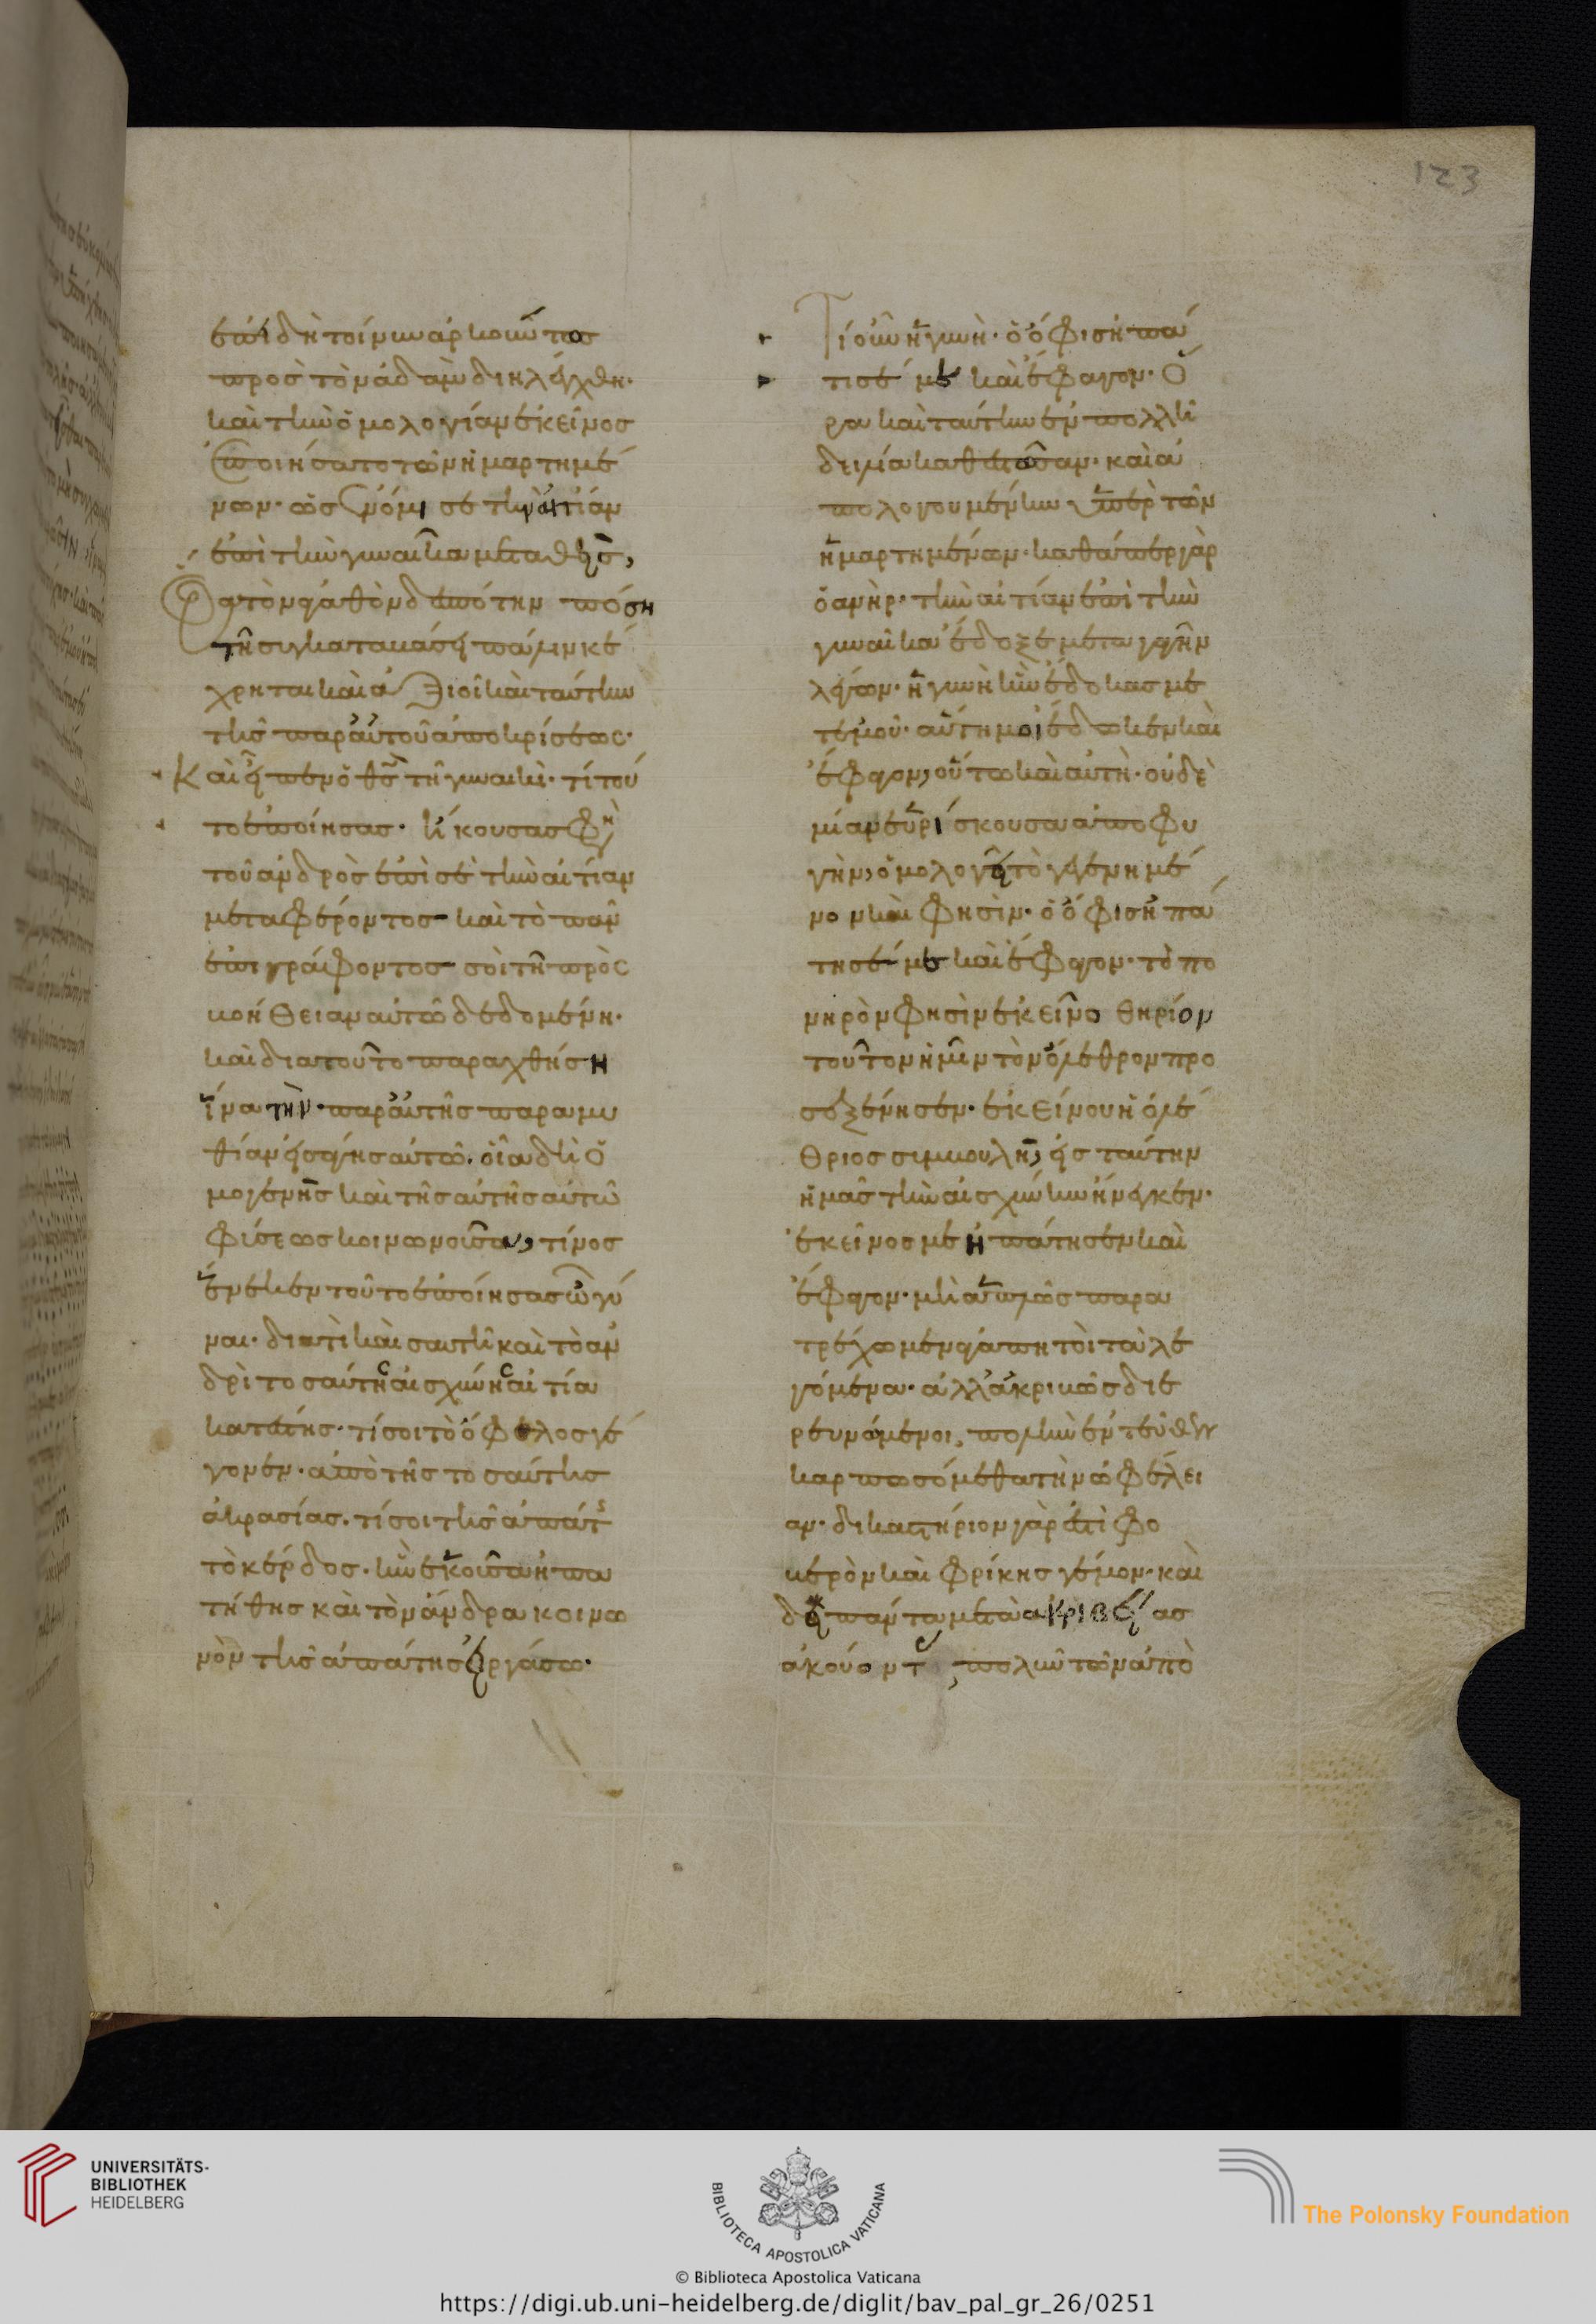 ἐπειδὴ τοίνυν ἀρκούντως
πρὸς τὸν ἀδὰμ διηλέχθη·
καὶ τὴν ὁμολογίαν ἐκεῖνος
ἐποιήσατο τῶν ἡμαρτημέ
νων· ὡς ἐνόμισε τὴν αἰτίαν
ἐπὶ τὴν γυναῖκα μεταθεὶς,
ὅρα τὸν ἀγαθὸν δεσπότην πόση
τῆ συγκαταβάσει πάλιν κέ
χρηται καὶ ἀξιοῖ καὶ ταύτην
τῆς παρ' αὐτοῦ ἀποκρίσεως·
Καὶ εἶπεν ὁ θς τῆ γυναικὶ· τί τοῦ
το ἐποίησας· ἤκουσας φη
τοῦ ἀνδρὸς ἐπὶ σὲ τὴν αἰτίαν
μεταφέροντος καὶ τὸ πᾶν
ἐπιγράφοντος σοὶ τῆ πρὸς
βοήθειαν αὐτῶ δεδομένη·
καὶ διατοῦτο παραχθήση
ἵνα τὴν παρ' αὐτῆς παραμυ
θίαν εἰσάγης αὐτῶ. οἷα δὴ ὁ
μογενὴς καὶ τῆς αὐτῆς αὐτῶ
φύσεως κοινωνοῦσα, τίνος
ἕνεκεν τοῦτο ἐποίησας ὦ γύ
ναι· διατὶ καὶ σαυτῆ καὶ τὸ ἀν
δρὶ τοσαύτης αἰσχύνης αἰτία
κατέστης· τί σοι τὸ ὄφελος γέ
γονεν· ἀπὸ τῆς τοσαύτης
ἀκρασίας. τί σοι τῆς ἀπάτης
τὸ κέρδος. ἣν ἑκοῦσα ἠπα
τήθης καὶ τὸν ἄνδρα κοινω
νὸν τῆς ἀπάτης εἰργάσω·
Τί οὖν ἡ γυνὴ· ὁ ὄφις ἠπά
τισέ με καὶ ἔφαγον· ὅ
ρα καὶ ταύτην ἐν πολλῆ
δειλία καθεστῶσαν· καὶ ἀ
πολογουμένην ὑπὲρ τῶν
ἡμαρτημένων· καθάπερ γὰρ
ὁ ἀνὴρ· τὴν αἰτίαν ἐπὶ τὴν
γυναῖκα ἔδοξε μεταγαγεῖν
λέγων· ἡ γυνὴ ἣν ἔδωκας με
τεμοῦ· αὕτη μοι ἔδωκεν καὶ
ἔφαγον, οὕτω καὶ αὐτὴ· οὐδε
μίαν εὑρίσκουσα ἀποφυ
γὴν, ὁμολογεῖ τὸ γεγενημέ
νον καὶ φησὶν· ὁ ὄφις ἠπά
τησέ με καὶ ἔφαγον· τὸ πο
νηρὸν φησὶν ἐκεῖνο θηρίον
τοῦτον ἡμῖν τὸν ὄλεθρον προ
σεξένησεν· ἐκείνου ἡ ὀλέ
θριος συμβουλὴ, εἰς ταύτην
ἡμᾶς τὴν αἰσχύνην ἤνεγκεν·
ἐκεῖνος με ἠπάτησεν καὶ
ἔφαγον· μὴ ἁπλῶς παρα
τρέχωμεν ἀγαπητοὶ τὰ λε
γόμενα· ἀλλ' ἀκριβῶς διε
ρευνώμενοι, πολλὴν ἐντεῦθεν
καρπωσόμεθα τὴν ὠφέλει
αν· δικαστήριον γὰρ ἐστὶ φο
βερὸν καὶ φρίκης γέμον· καὶ
δεῖ πάντα μετὰ ἀκριβείας
ἀκούοντας, πολὺν τῶν ἀπὸ
123
UNIVERSITÄTS-
BIBLIOTHEK
HEIDELBERG
BIBLIOTECA APOSTOLICA VATICANA
The Polonsky Foundation
© Biblioteca Apostolica Vaticana
https://digi.ub.uni-heidelberg.de/diglit/bav_pal_gr_26/0251